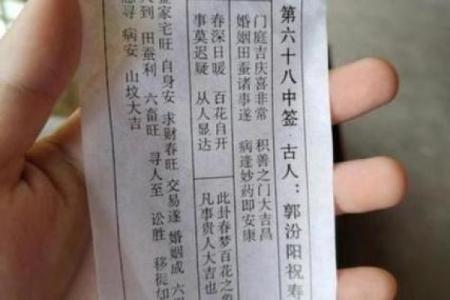 第六十八中签 古人：郭汾阳祝寿
门庭吉庆喜非常 积善之门大吉昌
婚姻田蚕诸事遂 病逢妙药即安康
春深日暖 百花自开
事莫迟疑 从人显达
此卦春梦百花之
凡事贵人大吉也
家宅旺 自身安 求财春旺 交易遂 婚姻成 六
到 田蚕利 六畜旺 寻人至 讼胜 移徙
寻 病安 山坟大吉